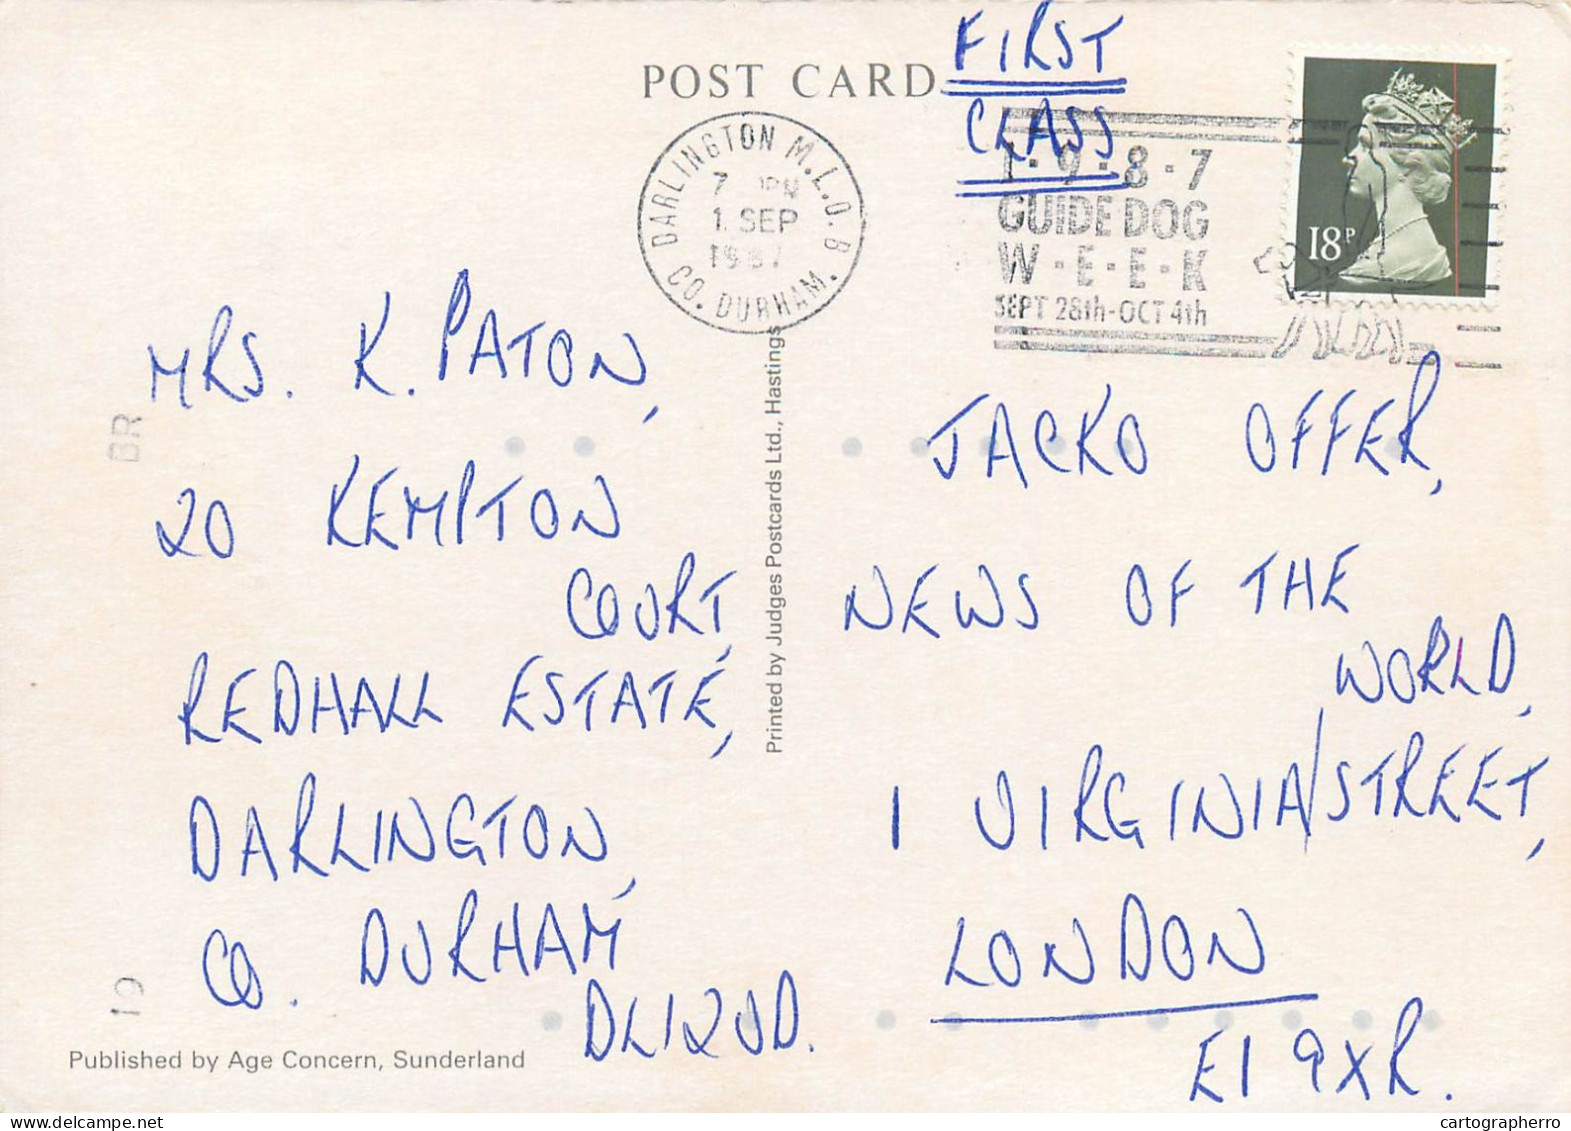 POST CARD
FIRST
CLASS
DARLINGTON M.L.O. B
7 PM
1 SEP
1987
CO. DURHAM.
1·9·8·7
GUIDE DOG
W·E·E·K
SEPT 28th-OCT 4th
18P
MRS. K. PATON,
20 KEMPTON
COURT,
REDHALL ESTATE,
DARLINGTON,
CO. DURHAM
DL12UD.
BR
19
Published by Age Concern, Sunderland
Printed by Judges Postcards Ltd., Hastings
JACKO OFFER,
NEWS OF THE
WORLD,
1 VIRGINIA/STREET,
LONDON
E1 9XR.
cartographerro